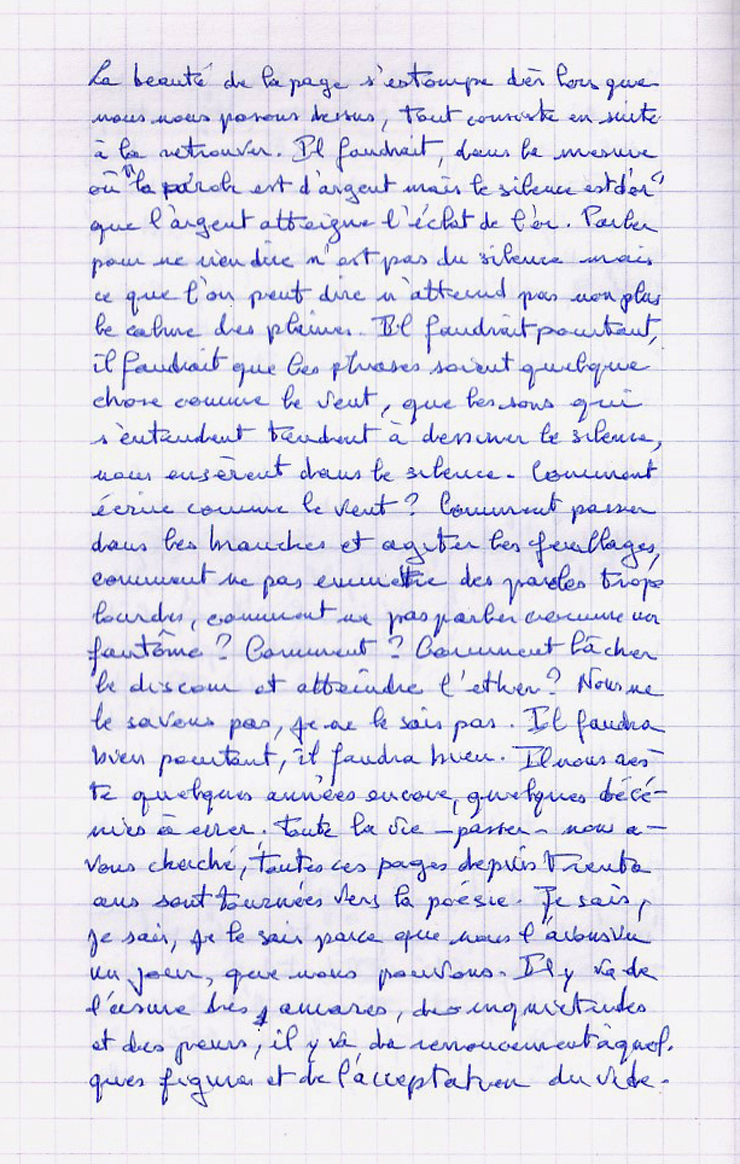 La beauté de la page s'estompe dès lors que
nous nous posons dessus, tout consiste en suite
à la retrouver. Il faudrait, dans la mesure
où "la parole est d'argent mais le silence est d'or"
que l'argent atteigne l'éclat de l'or. Parler
pour ne rien dire n'est pas du silence mais
ce que l'on peut dire n'atteind pas non plus
le calme des plaines. Il faudrait pourtant,
il faudrait que les phrases soient quelque
chose comme le vent, que les sons qui
s'entendent tendent à dessiner le silence,
nous insèrent dans le silence. Comment
écrire comme le vent ? Comment passer
dans les branches et agiter les feuillages,
comment ne pas emmettre des paroles trop
lourdes, comment ne pas parler comme un
fantôme ? Comment ? Comment lâcher
le discour et atteindre l'ether ? Nous ne
le savons pas, je ne le sais pas. Il faudra
bien pourtant, il faudra bien. Il nous res-
te quelques années encore, quelques décé-
nies à errer. Toute la vie - passer - nous a-
vons cherché, toutes ces pages depuis trente
ans sont tournées vers la poésie. Je sais,
je sais, je le sais parce que nous l'avons vu
un jour, que nous pouvons. Il y va de
l'usure des amares, des inquiétudes
et des peurs, il y va du renoncement à quel-
ques figures et de l'acceptation du vide.